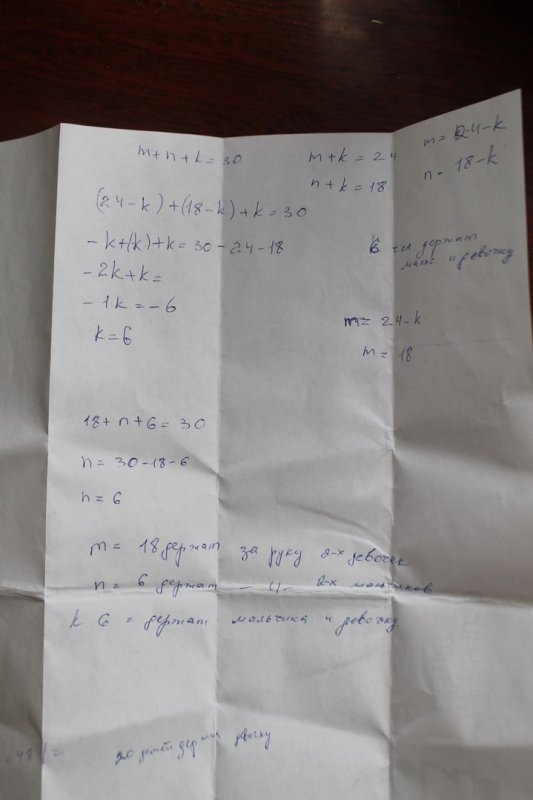 m+n+k=30
m+k=24
m=24-k
n+k=18
n=18-k
(24-k)+(18-k)+k=30
-k+(k)+k=30-24-18
держат
и девочку
-2k+k=
-1k=-6
m=24-k
k=6
m=18
18+n+6=30
n=30-18-6
n=6
m= 18 держат за руку 2-х девочек
n= 6 держат -"- 2-х мальчиков
k 6 = держат мальчика и девочку
48/2 детей держат девочку